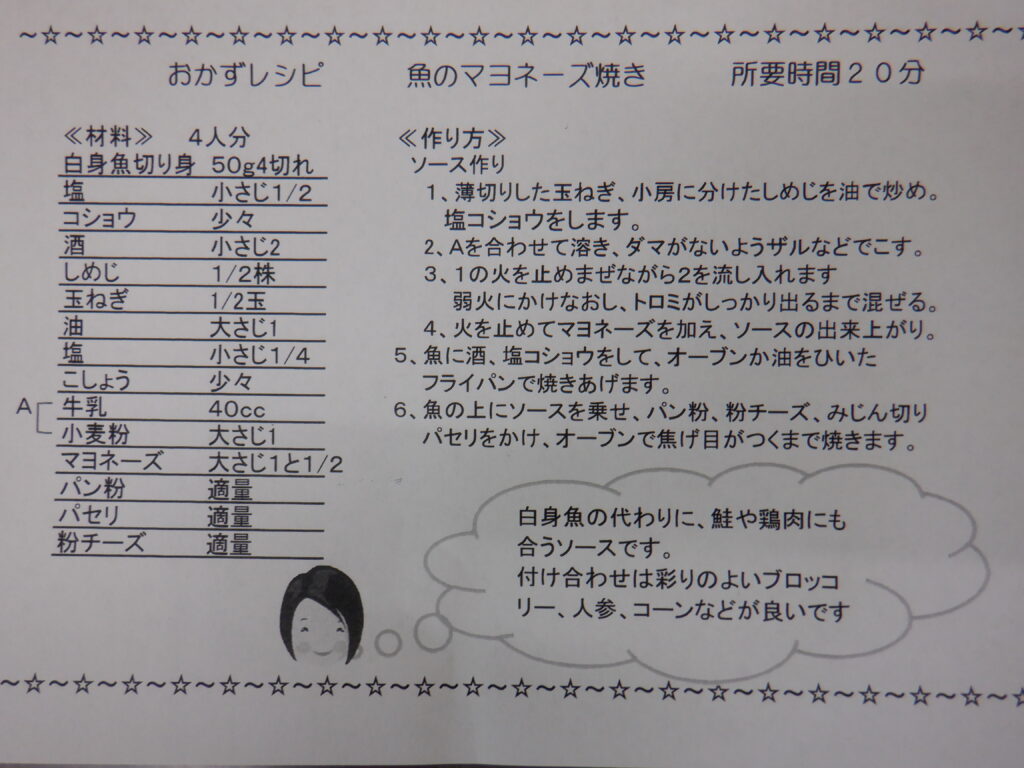 ~☆~☆~☆~☆~☆~☆~☆~☆~☆~☆~☆~☆~☆~☆~☆~☆~☆~☆~☆~☆~☆
おかずレシピ 魚のマヨネーズ焼き 所要時間20分
≪材料≫ 4人分
白身魚切り身 50g4切れ
塩 小さじ1/2
コショウ 少々
酒 小さじ2
しめじ 1/2株
玉ねぎ 1/2玉
油 大さじ1
塩 小さじ1/4
こしょう 少々
A 牛乳 40cc
小麦粉 大さじ1
マヨネーズ 大さじ1と1/2
パン粉 適量
パセリ 適量
粉チーズ 適量
≪作り方≫
ソース作り
1、薄切りした玉ねぎ、小房に分けたしめじを油で炒め。
塩コショウをします。
2、Aを合わせて溶き、ダマがないようザルなどでこす。
3、1の火を止めまぜながら2を流し入れます
弱火にかけなおし、トロミがしっかり出るまで混ぜる。
4、火を止めてマヨネーズを加え、ソースの出来上がり。
5、魚に酒、塩コショウをして、オーブンか油をひいた
フライパンで焼きあげます。
6、魚の上にソースを乗せ、パン粉、粉チーズ、みじん切り
パセリをかけ、オーブンで焦げ目がつくまで焼きます。
白身魚の代わりに、鮭や鶏肉にも
合うソースです。
付け合わせは彩りのよいブロッコ
リー、人参、コーンなどが良いです
~☆~☆~☆~☆~☆~☆~☆~☆~☆~☆~☆~☆~☆~☆~☆~☆~☆~☆~☆~☆~☆